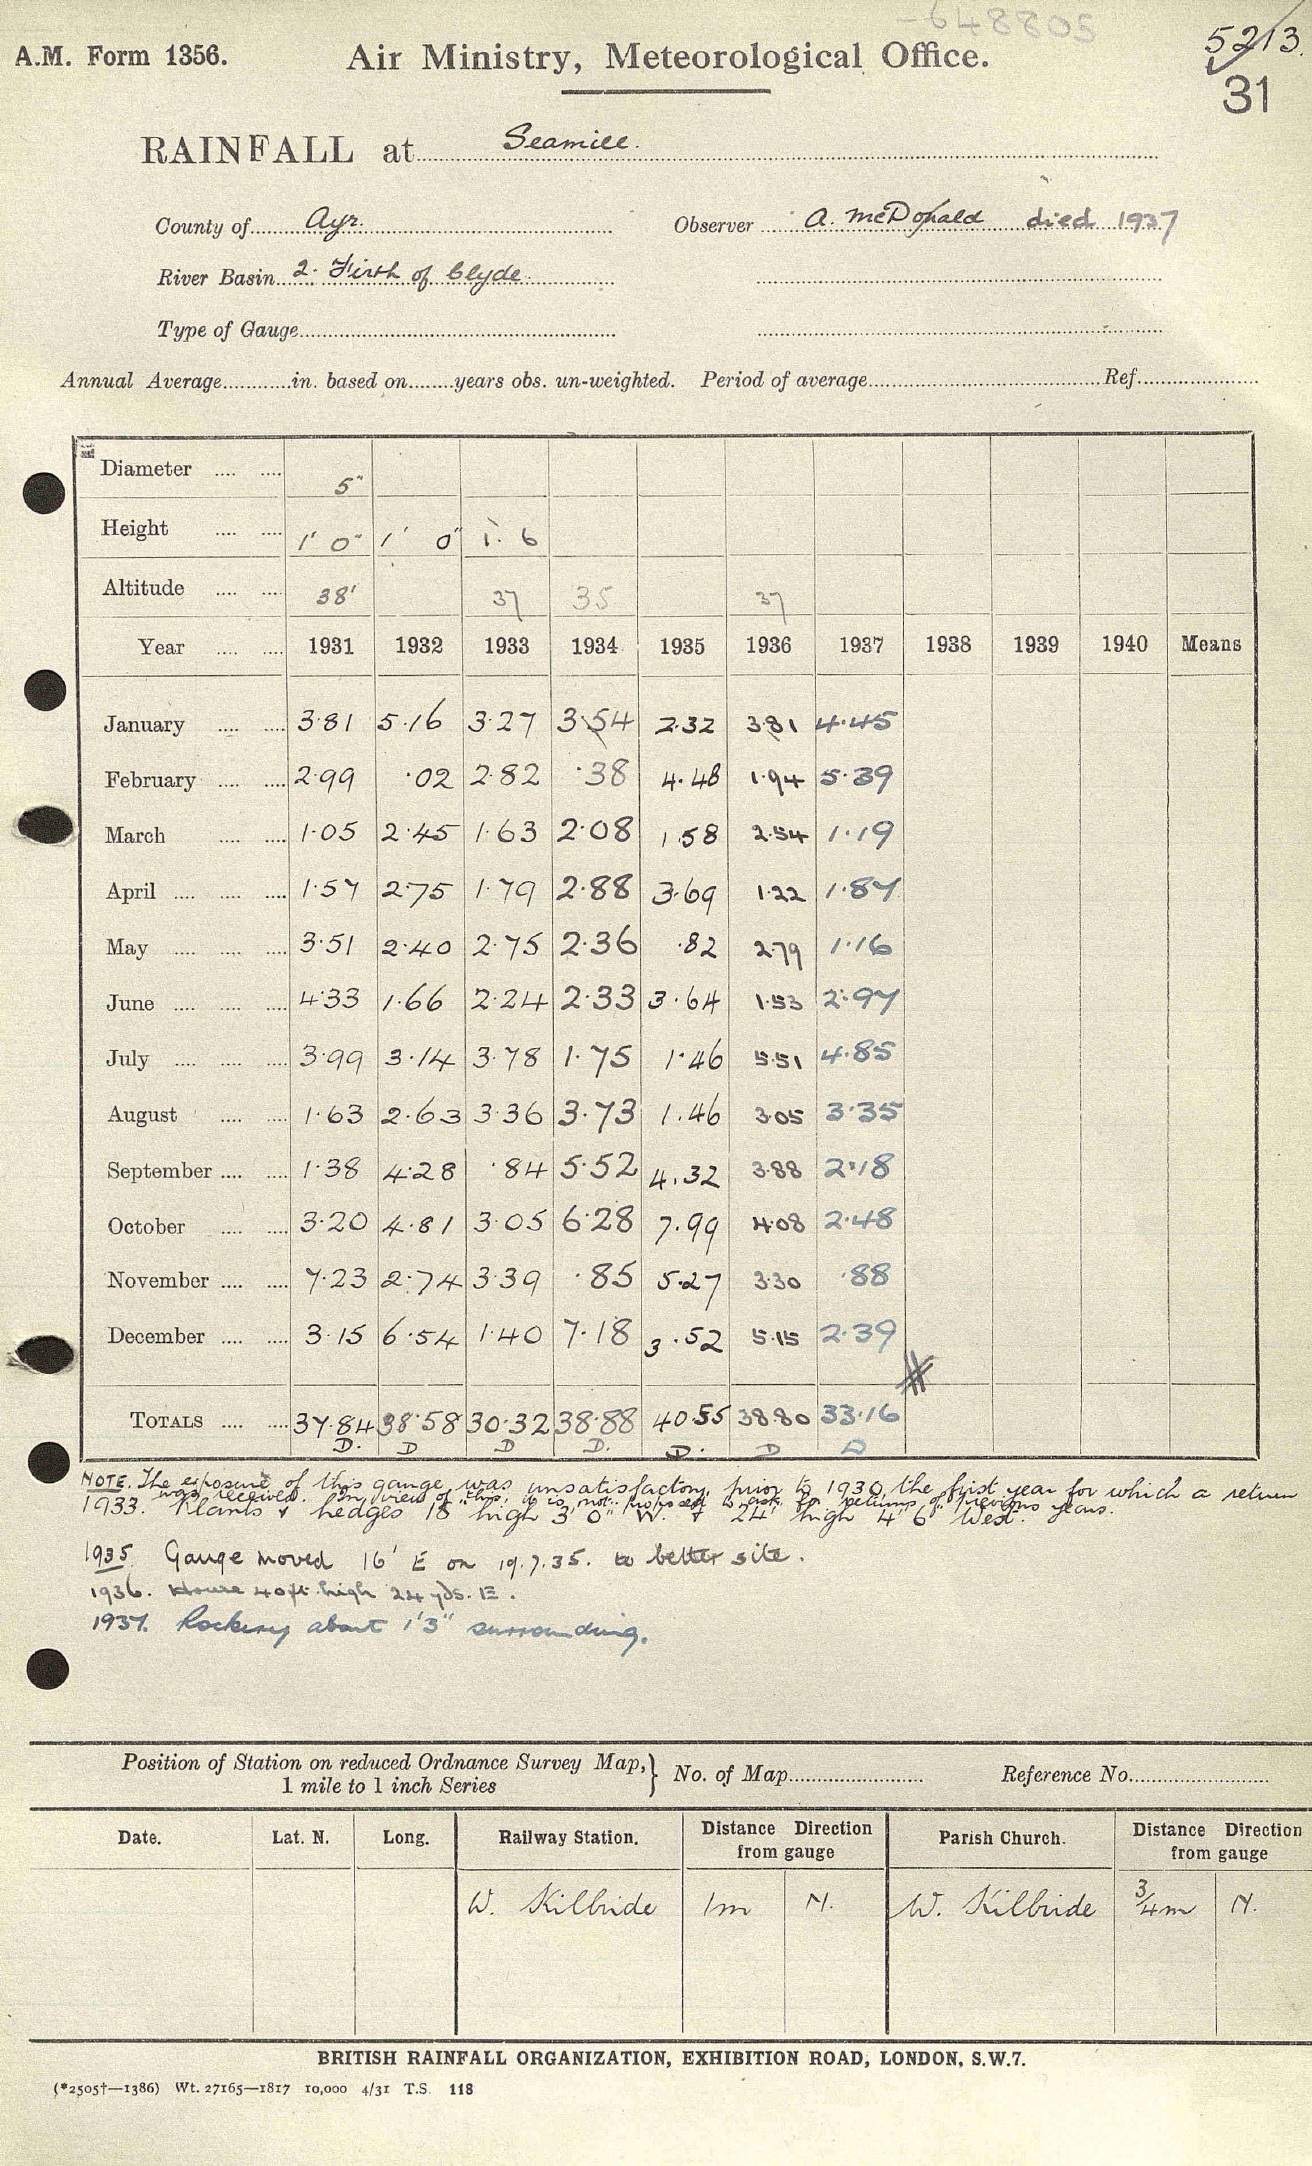 -648805
5213.
A.M. Form 1356. Air Ministry, Meteorological Office.
31
RAINFALL at Seamill.
County of Ayr. Observer A. McDonald died 1937
River Basin 2. Firth of Clyde
Type of Gauge
Annual Average in. based on years obs. un-weighted. Period of average Ref.
Diameter 5"
Height 1' 0" 1' 0" 1. 6
Altitude 38' 37 35 37
Year 1931 1932 1933 1934 1935 1936 1937 1938 1939 1940 Means
January 3.81 5.16 3.27 3.54 2.32 3.81 4.45
February 2.99 .02 2.82 .38 4.48 1.94 5.39
March 1.05 2.45 1.63 2.08 1.58 2.54 1.19
April 1.57 2.75 1.79 2.88 3.69 1.22 1.87
May 3.51 2.40 2.75 2.36 .82 2.79 1.16
June 4.33 1.66 2.24 2.33 3.64 1.53 2.97
July 3.99 3.14 3.78 1.75 1.46 5.51 4.85
August 1.63 2.63 3.36 3.73 1.46 3.05 3.35
September 1.38 4.28 .84 5.52 4.32 3.88 2.18
October 3.20 4.81 3.05 6.28 7.99 4.08 2.48
November 7.23 2.74 3.39 .85 5.27 3.30 .88
December 3.15 6.54 1.40 7.18 3.52 5.15 2.39
TOTALS 37.84 38.58 30.32 38.88 40.55 38.80 33.16
D. D D D. D. D D
NOTE. The exposure of this gauge was unsatisfactory prior to 1930, the first year for which a return
was received. In view of this, it is not proposed to ask for returns of previous years.
1933. Plants & hedges 18" high 3' 0" W. & 24" high 4' 6" West.
1935. Gauge moved 16' E on 19.7.35. to better site.
1936. House 40ft high 24 yds. E.
1937. Rockery about 1'3" surrounding.
Position of Station on reduced Ordnance Survey Map, 1 mile to 1 inch Series } No. of Map Reference No.
Date. Lat. N. Long. Railway Station. Distance Direction from gauge Parish Church. Distance Direction from gauge
W. Kilbride 1m N. W. Kilbride 3/4m N.
BRITISH RAINFALL ORGANIZATION, EXHIBITION ROAD, LONDON, S.W.7.
(*2505†—1386) Wt. 27165—1817 10,000 4/31 T.S. 118